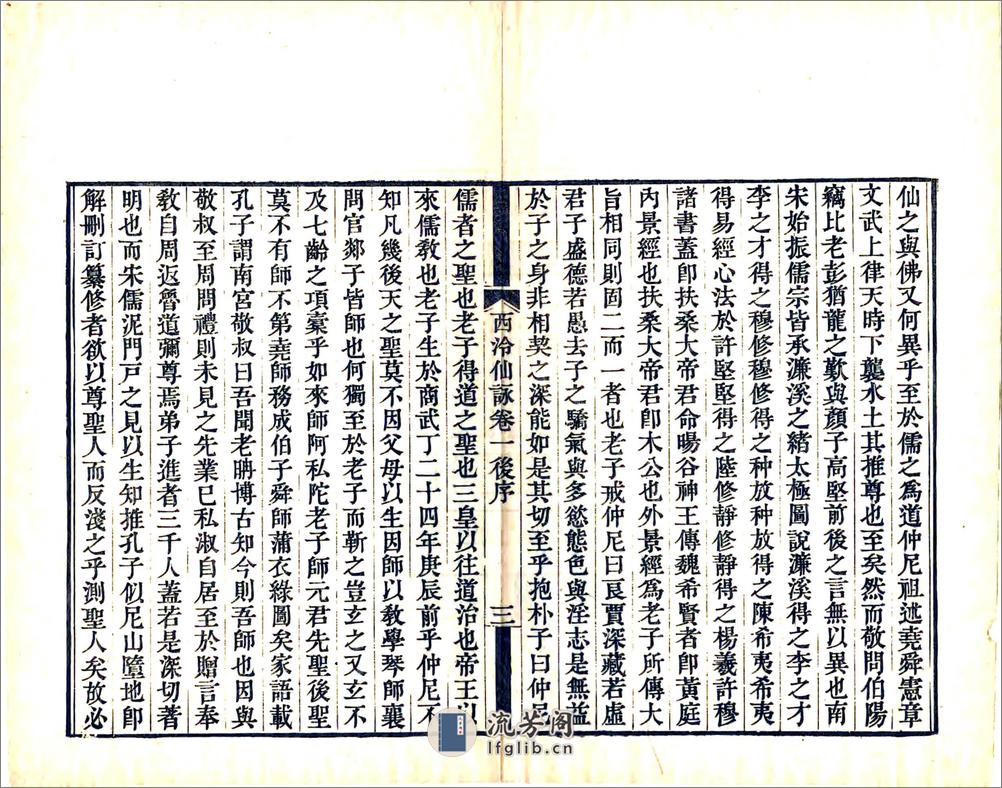 仙之與佛又何異乎至於儒之爲道仲尼祖述堯舜憲章
文武上律天時下襲水土其推尊也至矣然而敬問伯陽
竊比老彭猶龍之歎與顏子高堅前後之言無以異也南
宋始振儒宗皆承濂溪之緒太極圖說濂溪得之李之才
李之才得之穆修穆修得之种放种放得之陳希夷希夷
得易經心法於許堅堅得之陸修靜修靜得之楊羲許穆
諸書蓋卽扶桑大帝君命暘谷神王傳魏希賢者卽黃庭
內景經也扶桑大帝君卽木公也外景經爲老子所傳大
旨相同則固二而一者也老子戒仲尼曰良賈深藏若虛
君子盛德若愚去子之驕氣與多慾態色與淫志是無益
於子之身非相契之深能如是其切至乎抱朴子曰仲尼
西泠仙詠卷一後序
三
儒者之聖也老子得道之聖也三皇以往道治也帝王以
來儒敎也老子生於商武丁二十四年庚辰前乎仲尼不
知凡幾後天之聖莫不因父母以生因師以敎學琴師襄
問官郯子皆師也何獨至於老子而靳之豈玄之又玄不
及七齡之項橐乎如來師阿私陀老子師元君先聖後聖
莫不有師不第堯師務成伯子舜師蒲衣綠圖矣家語載
孔子謂南宮敬叔曰吾聞老聃博古知今則吾師也因與
敬叔至周問禮則未見之先業已私淑自居至於贈言奉
敎自周返魯道彌尊焉弟子進者三千人蓋若是深切著
明也而宋儒泥門戸之見以生知推孔子似尼山墮地卽
解刪訂纂修者欲以尊聖人而反淺之乎測聖人矣故必
流芳阁
lfglib.cn